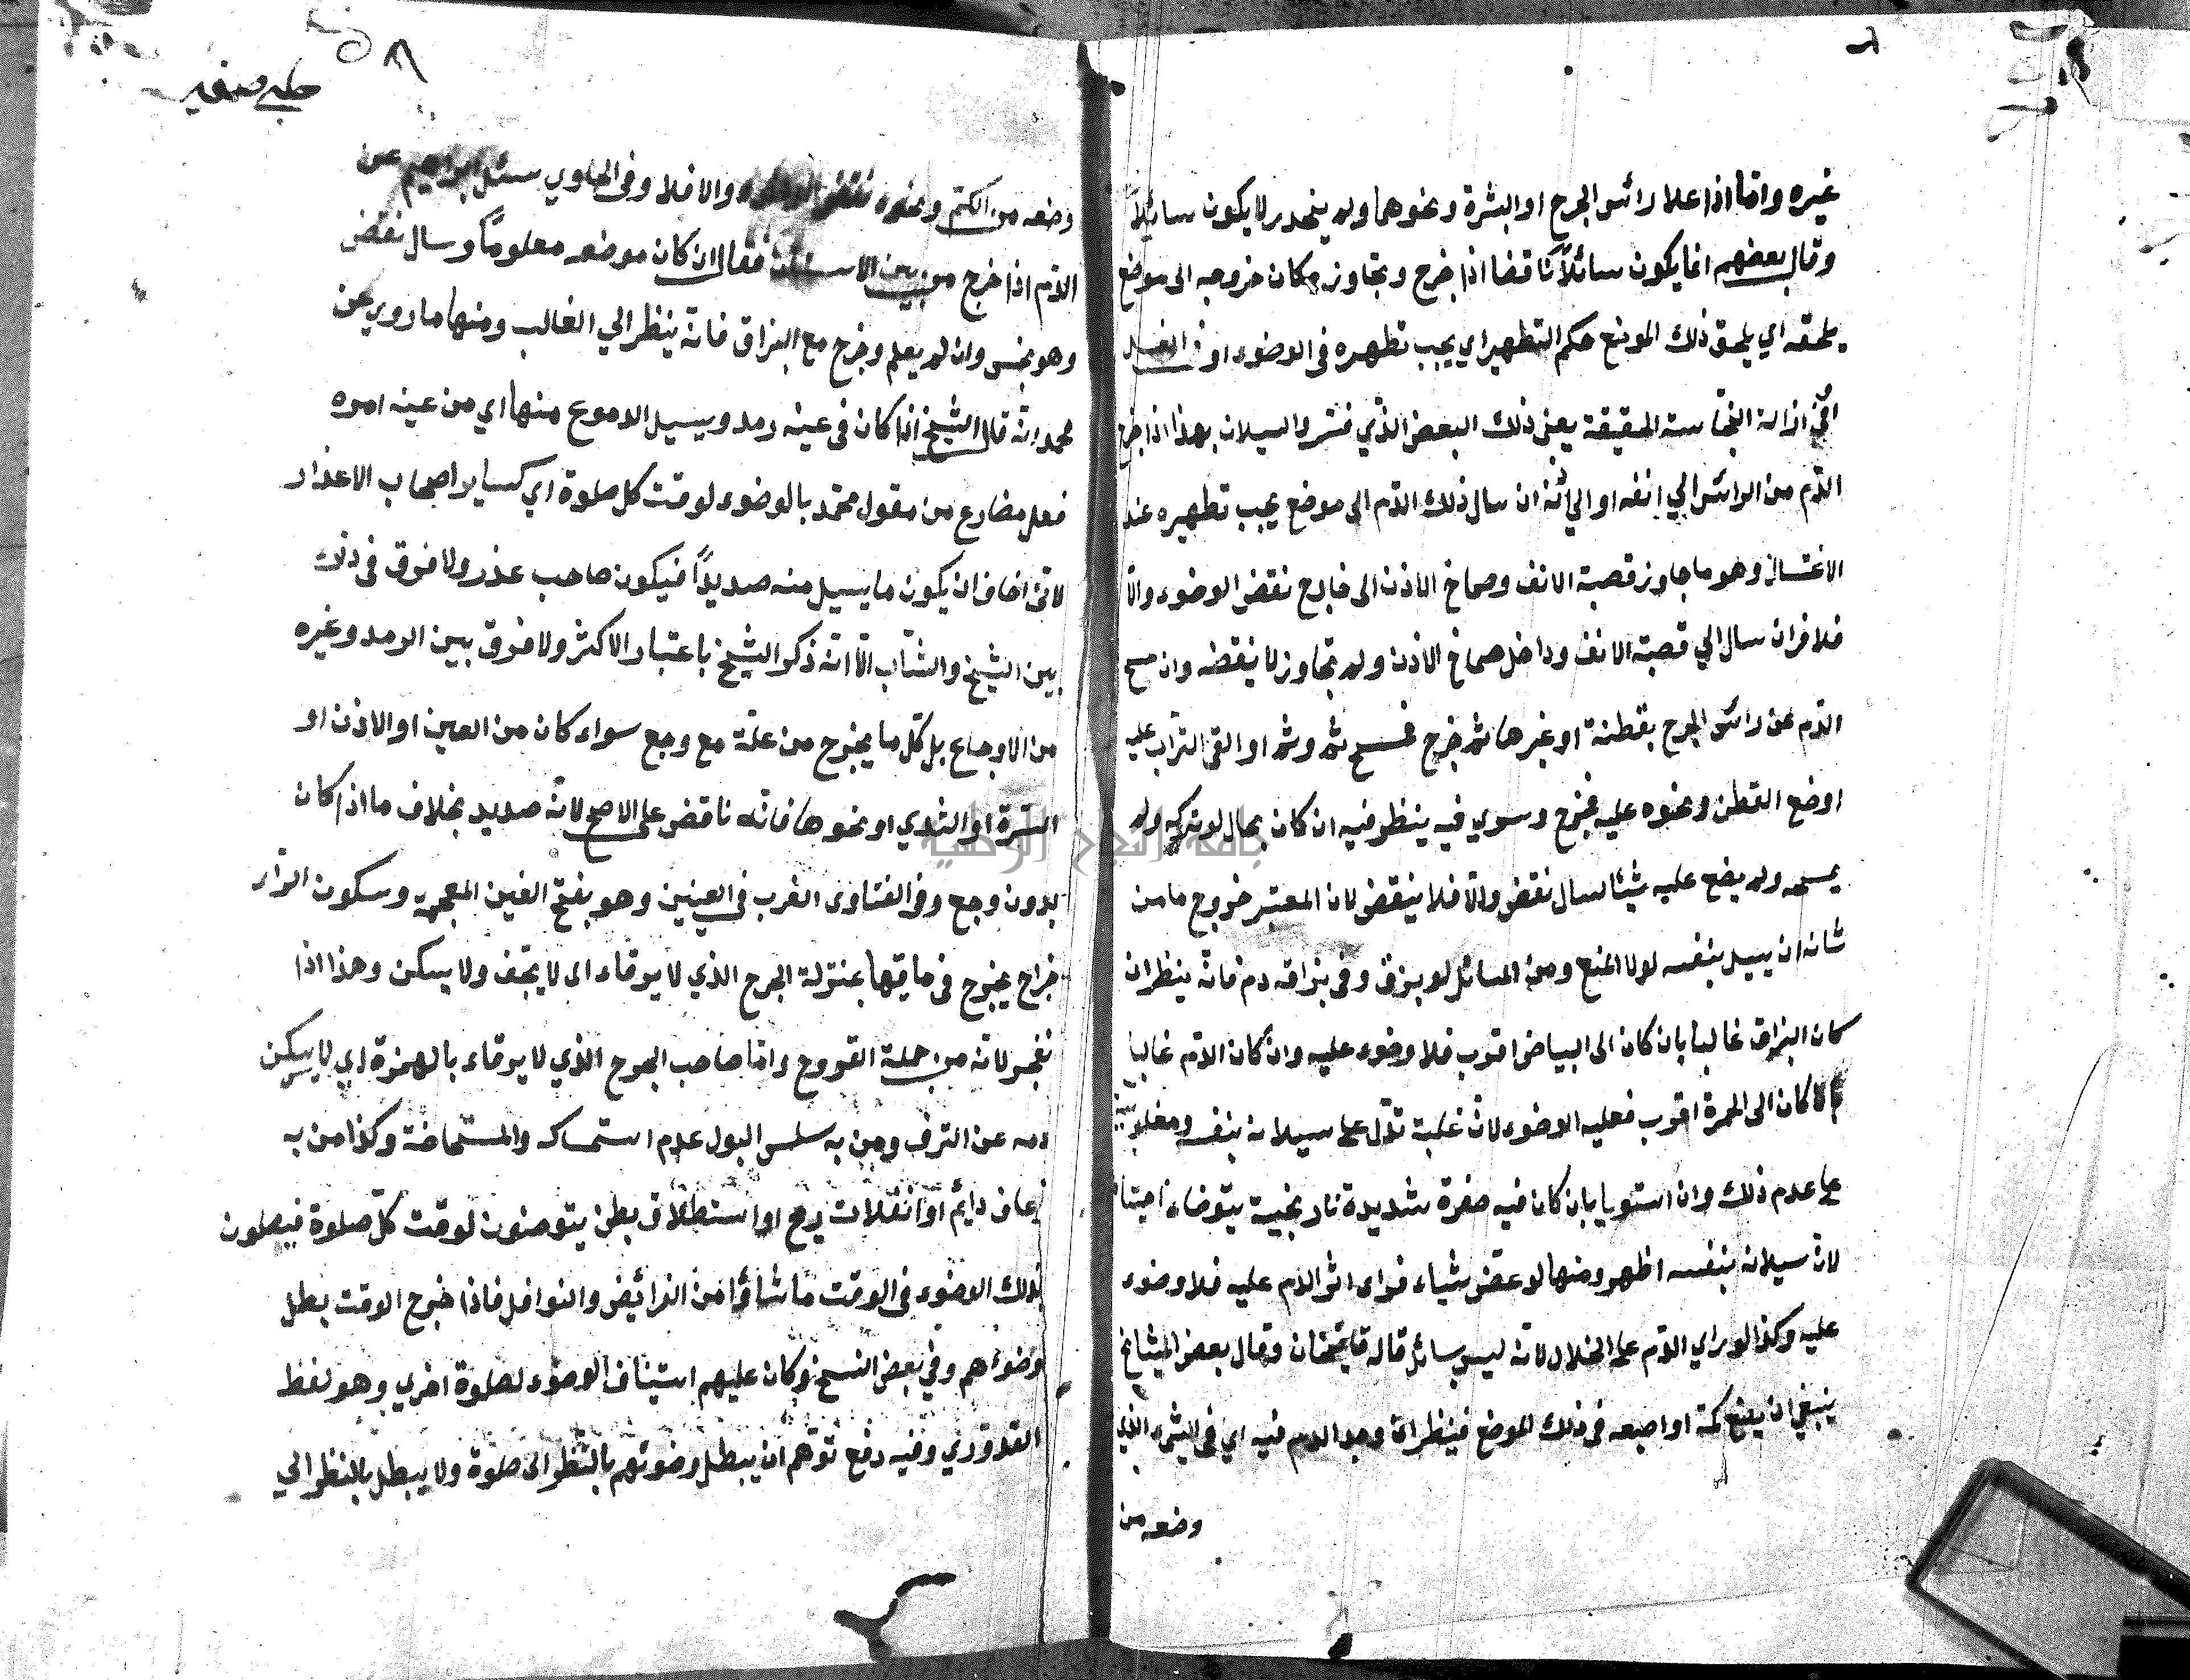 غيره واما اذا علا رائس الجرح او البشرة ونحوهما ولم ينحدر لا يكون سائلاً
وقال بعضهم انما يكون سائلاً ناقضا اذا خرج وتجاوز مكان خروجه الى موضع
يلحقه اي يلحق ذلك الموضع حكم التطهير اي يجب تطهره في الوضوء او في الغسل
ازالة النجاسة الحقيقة يعنى ذلك البعض الذي فسّر والسيلان بهذا اذا خرج
الدّم من الرائس الي انفه او الي اذنه ان سال ذلك الدّم الى موضع يجب تطهيره عند
الاغتسال وهو ما جاوز قصبة الانف وصماخ الاذن الى خارج نقض الوضوء والّا
فلا فان سال الي قصبة الانف وداخل صماخ الاذن ولم يتجاوز لا ينقضه وان مسح
الدّم عن رائس الجرح بقطنة او غيرها ثم خرج فمسح ثم وثم او القى التّراب عليه
اوضع القطن ونحوه عليه فخرج وسوي فيه ينظر فيه ان كان بحال لو تركه ولم
يمسحه ولم يضع عليه شيئا لسال نقض والّا فلا ينقض لان المعتبر خروج ما من
شانه ان يسيل بنفسه لولا المنع ومن المسائل لو بزق وفى بزاقه دم فانّه ينظر ان
كان البزاق غالبا بان كان الى البياض اقرب فلا وضوء عليه وان كان الدّم غالبا
كان الى الحمرة اقرب فعليه الوضوء لان غلبة تدلّ على سيلانه بنفسه ومغلوبيته
على عدم ذلك وان استويا بان كان فيه صفرة شديدة نارنجية يتوضاء احتيا
لانّ سيلانه بنفسه اظهر ومنها لو عضّ شياء فراى اثر الدّم عليه فلا وضوء
عليه وكذا لو راي الدّم على الخلال لانّه ليس بسائل قاله قاضيخان وقال بعض المشايخ
ينبغي ان يضع كمّه او اصبعه فى ذلك الموضع فينظر ان وجد الدم فيه اي فى الشيء الذي
وضعه من
حلبي صغير
وضعه من الكمّ ونحوه نقض الوضوء والا فلا وفى الحاوي سئل ابراهيم عن
الدّم اذا خرج من بين الاسنان فقال ان كان موضعه معلوماً وسال نقض
وهو نجس وان لم يعلم وخرج مع البزاق فانّه ينظر الي الغالب ومنها ما روي عن
محمد انه قال الشيخ اذا كان فى عينه رمد ويسيل الدموع منها اي من عينه امره
فعل مضارع من مقول محمّد بالوضوء لوقت كل صلوة اي كساير اصحاب الاعذار
لانى اخاف ان يكون ما يسيل منه صديداً فيكون صاحب عذر ولا فرق فى ذلك
بين الشيخ والشّاب الّا انّه ذكر الشيخ باعتبار الاكثر ولا فرق بين الرمد وغيره
من الاوجاع بل كلّ ما يخرج من علّة مع وجع سواء كان من العين او الاذن او
السّرة او الثدي او نحوها فانّه ناقض على الاصح لانّه صديد بخلاف ما اذا كان
بدون وجع وفى الفتاوى الغرب فى العينين وهو بفتح الغين المعجمة وسكون الرّاء
خراج يخرج فى ماقيها بمنزلة الجرح الذي لا يرقاء اى لا يجفّ ولا يسكن وهذا اذا
نفجر لانّه من جملة القروح وامّا صاحب الجرح الذي لا يرقاء بالهمزة اي لا يسكن
دمه عن النزف ومن به سلس البول عدم استمساكه والمستحاضة وكذا من به
رعاف دايم او انفلات ريح او استطلاق بطن يتوضئون لوقت كلّ صلوة فيصلون
بذلك الوضوء فى الوقت ما شاؤا من الفرائض والنوافل فاذا خرج الوقت بطل
وضوءهم وفي بعض النسخ وكان عليهم استيناف الوضوء لصلوة اخري وهو لفظ
القدوري وفيه دفع توّهم ان يبطل وضوئهم بالنّظر الى صلوة ولا يبطل بالنظر الي
جامعة النجاح الوطنية